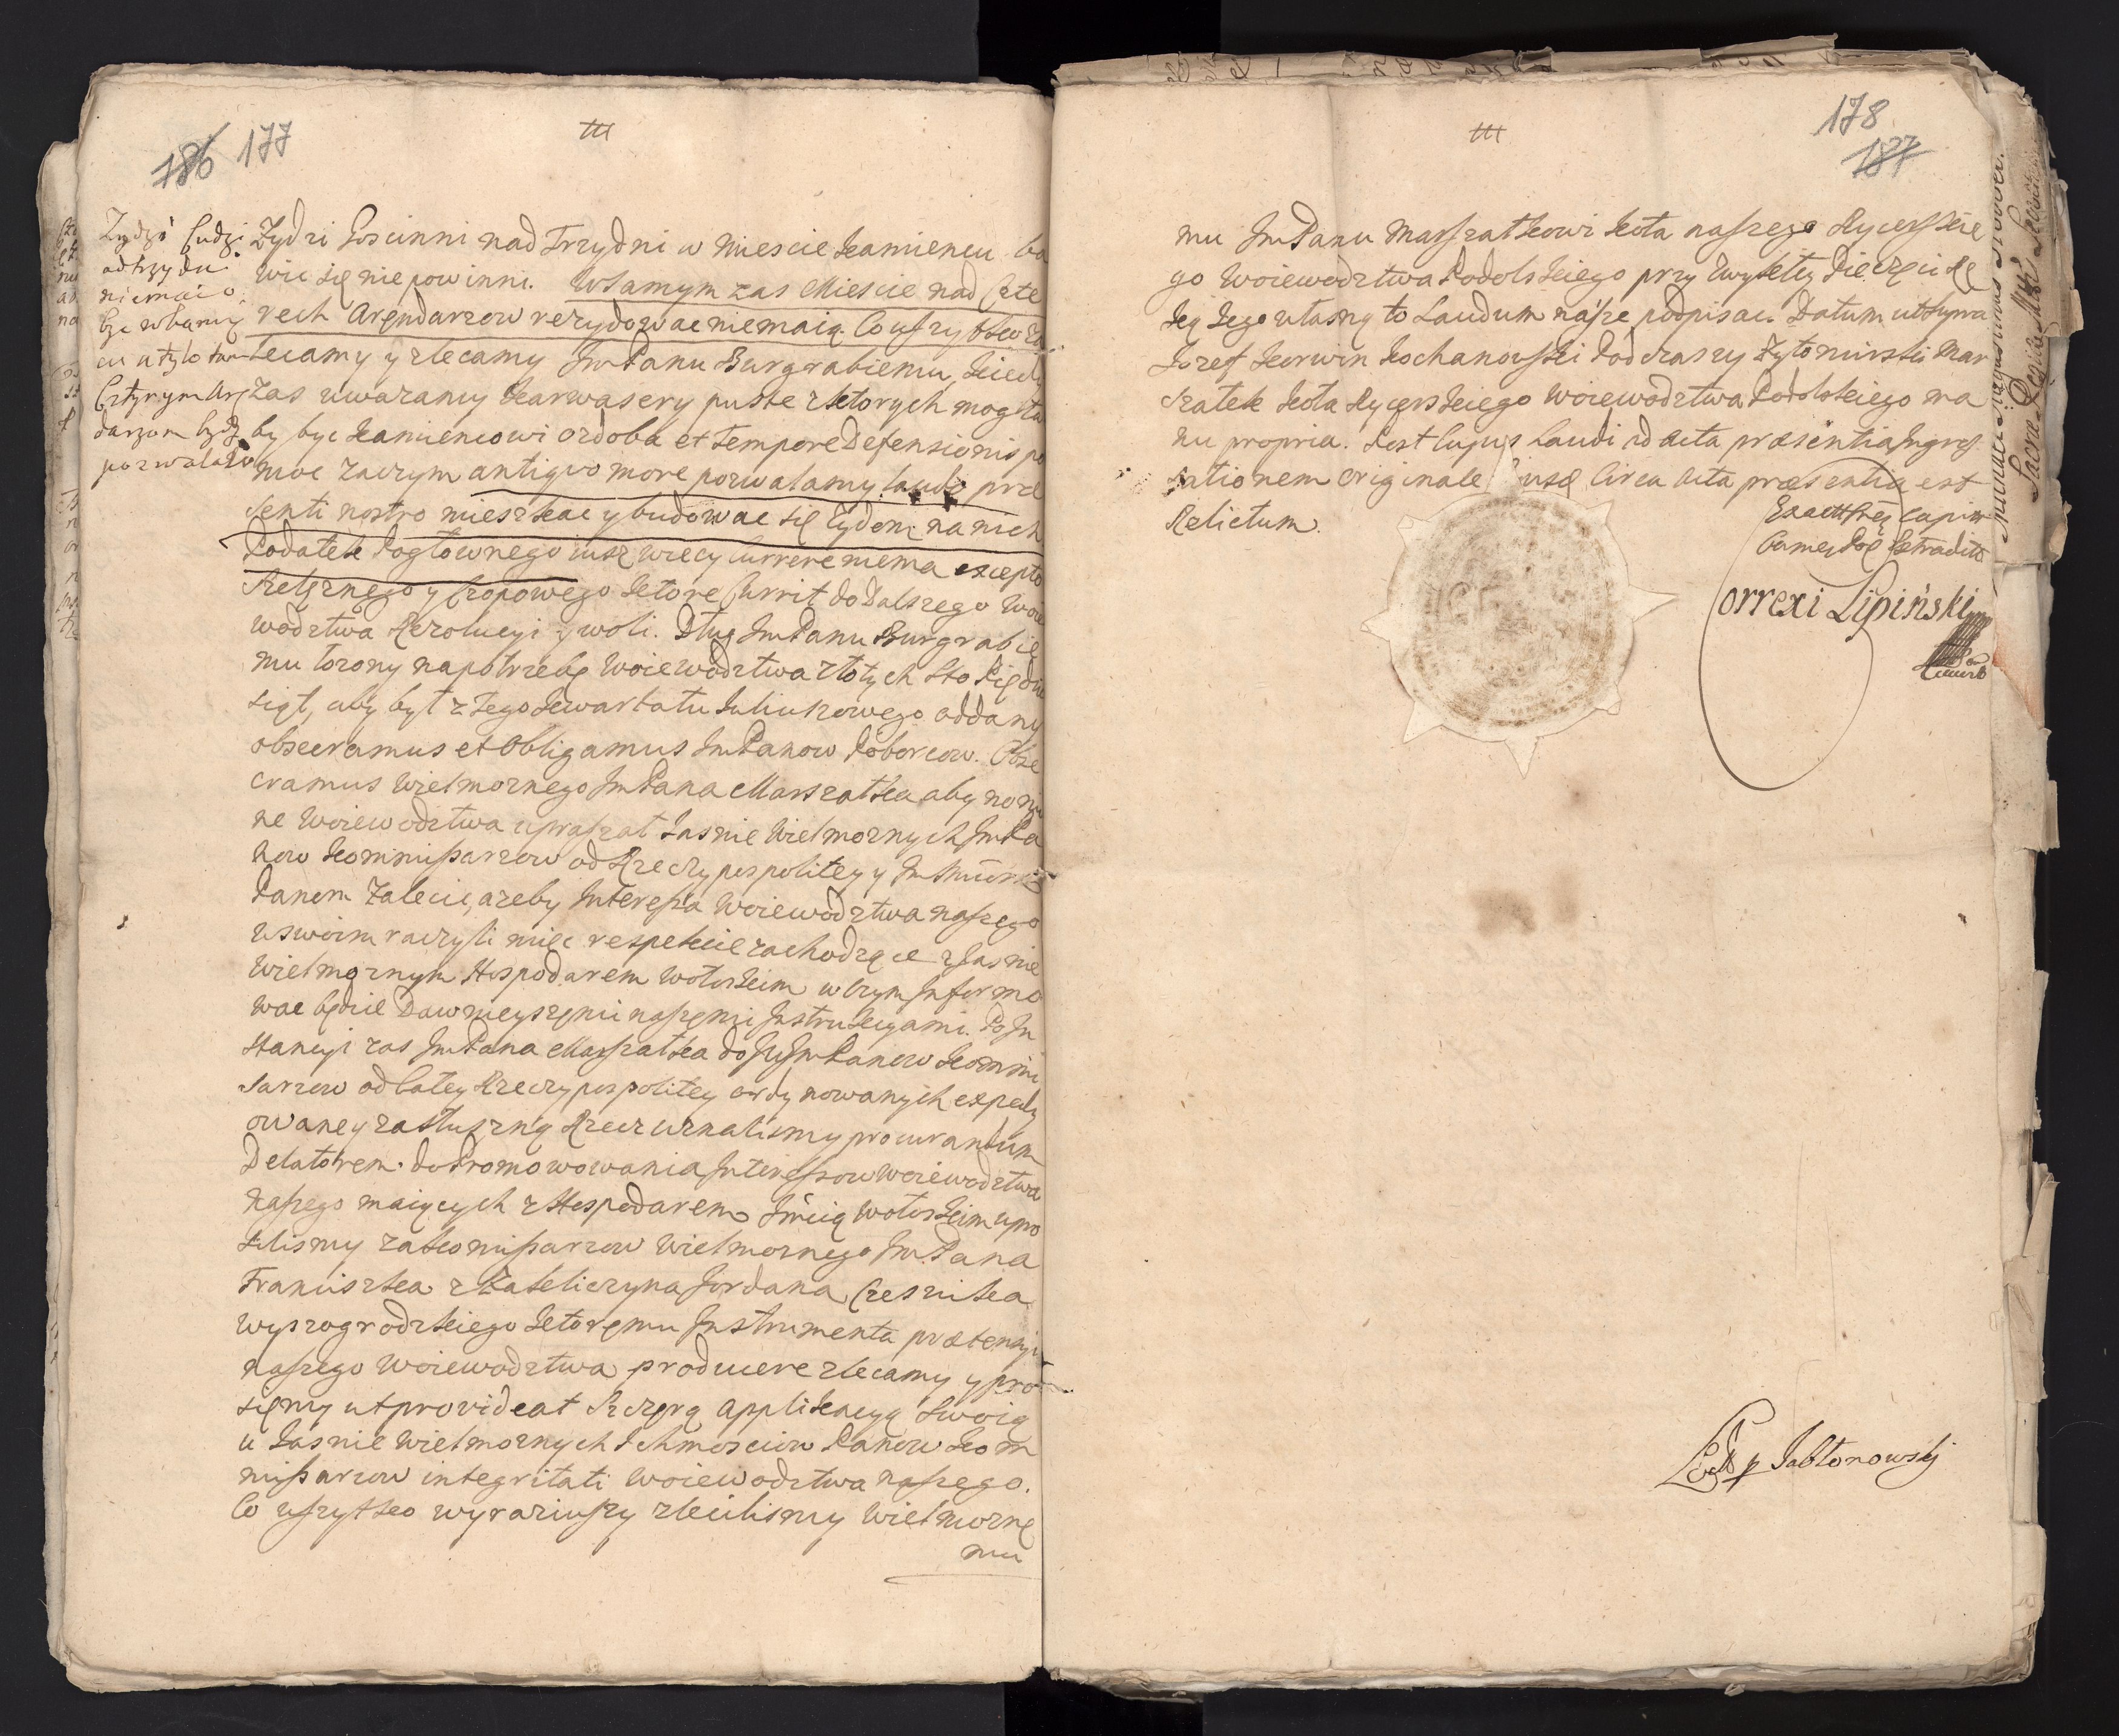 186 177
Żydzi Goscinni nad Trzydni w Miescie Kamiencu ba
wic się nie powinni. W Samym zas Miescie nad Czte
rech Arędarzow rezydowac niemaią. Co uszytko za
lecamy y zlecamy Jm Panu Burgrabiemu, kiedy
zas uwazamy Karwasery puste z ktorych mogła
by byc Kamiencowi ozdoba et tempore Defensionis po
moc zaczym antiquo more pozwalamy laudo præ
senti nostro mieszkac y budowac się Żydom na nich
Podatek Pogłownego iusz wiecy Currere niema excepto
Szelęznego y Czopowego ktore Currit do Dalszego Woie
wodztwa Rezolucyi y woli. Dług Jm Panu Burgrabie
mu łozony na potrzebę Woiewodztwa złotych sto Pięcdzie
siąt, aby był z tego kwartału Juliuszowego oddany
obsecramus et Obligamus Jm Panow Poborcow. Obse
cramus Wielmoznego Jm Pana Marszałka aby nomi
ne Woiewodztwa upraszał Jasnie Wielmoznych Jm Pa
now Kommissarzow od Rzeczypospolitey y
Panom Zalecic, azeby Interessa Woiewodztwa naszego
w swoim raczyli miec respekcie zachodzące z Jasnie
Wielmoznym Hospodarem Wołoskim w czym Informo
wac będzie Dawnieyszemi naszemi Instrukcyami. Po In
stancyi zas Jm Pana Marszałka do Jchm Panow Kommi
sarzow od Całey Rzeczypospolitey ordynowanych expedy
owaney za słuszną Rzecz uznalismy procurandum
Delatorem. do Promowowania Interessow Woiewodztwa
naszego maiących z Hospodarem Jmcią Wołoskim upro
silismy za Komissarzow Wielmoznego Jm Pana
Franciszka z Zakliczyna Jordana Czesnika
Wyszogrodzkiego ktoremu Instrumenta prætensyi
naszego Woiewodztwa producere zlecamy y pro
siemy ut provideat Szczyrą applikacyą swoią
u Jasnie Wielmoznych Ichmosciow Panow Kom
missarzow integritati Woiewodztwa naszego.
Co uszytko wyraziuszy zlecilismy Wielmozne
mu
Zydzi Cudzi
nad trzy dni
niemaią
byc w Kamię
cu a tylo tam
Cztyrym Arę
darzom bydz
pozwalaią
178
187
mu Jm Panu Marszałkowi Koła naszego Rycerskie
go Woiewodztwa Podolskiego przy zwykłey Pieczęci Rę
ką Jego własną to Laudum násze podpisac. Datum ut supra
Jozef Korwin Kochanowski Podczaszy Zytomirski Mar
szałek Koła Rycerskiego Woiewodztwa Podolskiego ma
nu propria. Post cujus Laudi ad Acta præsentia Ingros
sationem originale ejusdem Circa Acta præsentia est
Relictum.
Ex Actis Castren Capitan
Camenecen Pod Extraditum
Correxi Lipiński
Jabłonowsky